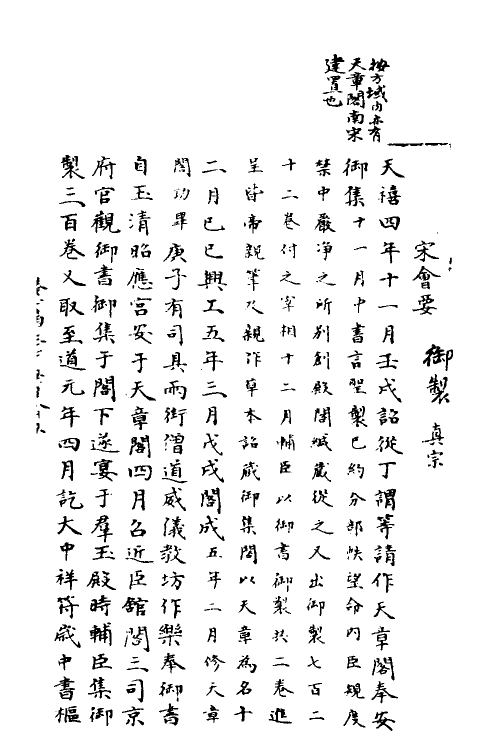 按方域內亦有
天章閣南宋
建置也
宋會要
御製 真宗
天禧四年十一月壬戌詔從丁謂等請作天章閣奉安
御集十一月中書言聖製已約分部帙望令內臣規度
禁中嚴净之所别創殿閣緘藏從之又出御製七百二
十二卷付之宰相十二月輔臣以御書御製於二卷進
呈皆帝親筆及親作草本詔藏御集閣以天章為名十
二月己巳興工五年三月戊戌閣成五年二月修天章
閣功畢庚子有司具兩街僧道威儀教坊作樂奉御書
自玉清昭應宮安于天章閣四月召近臣館閣三司京
府官觀御書御集于閣下遂宴于羣玉殿時輔臣集御
製三百卷又取至道元年四月訖大中祥符歲中書樞